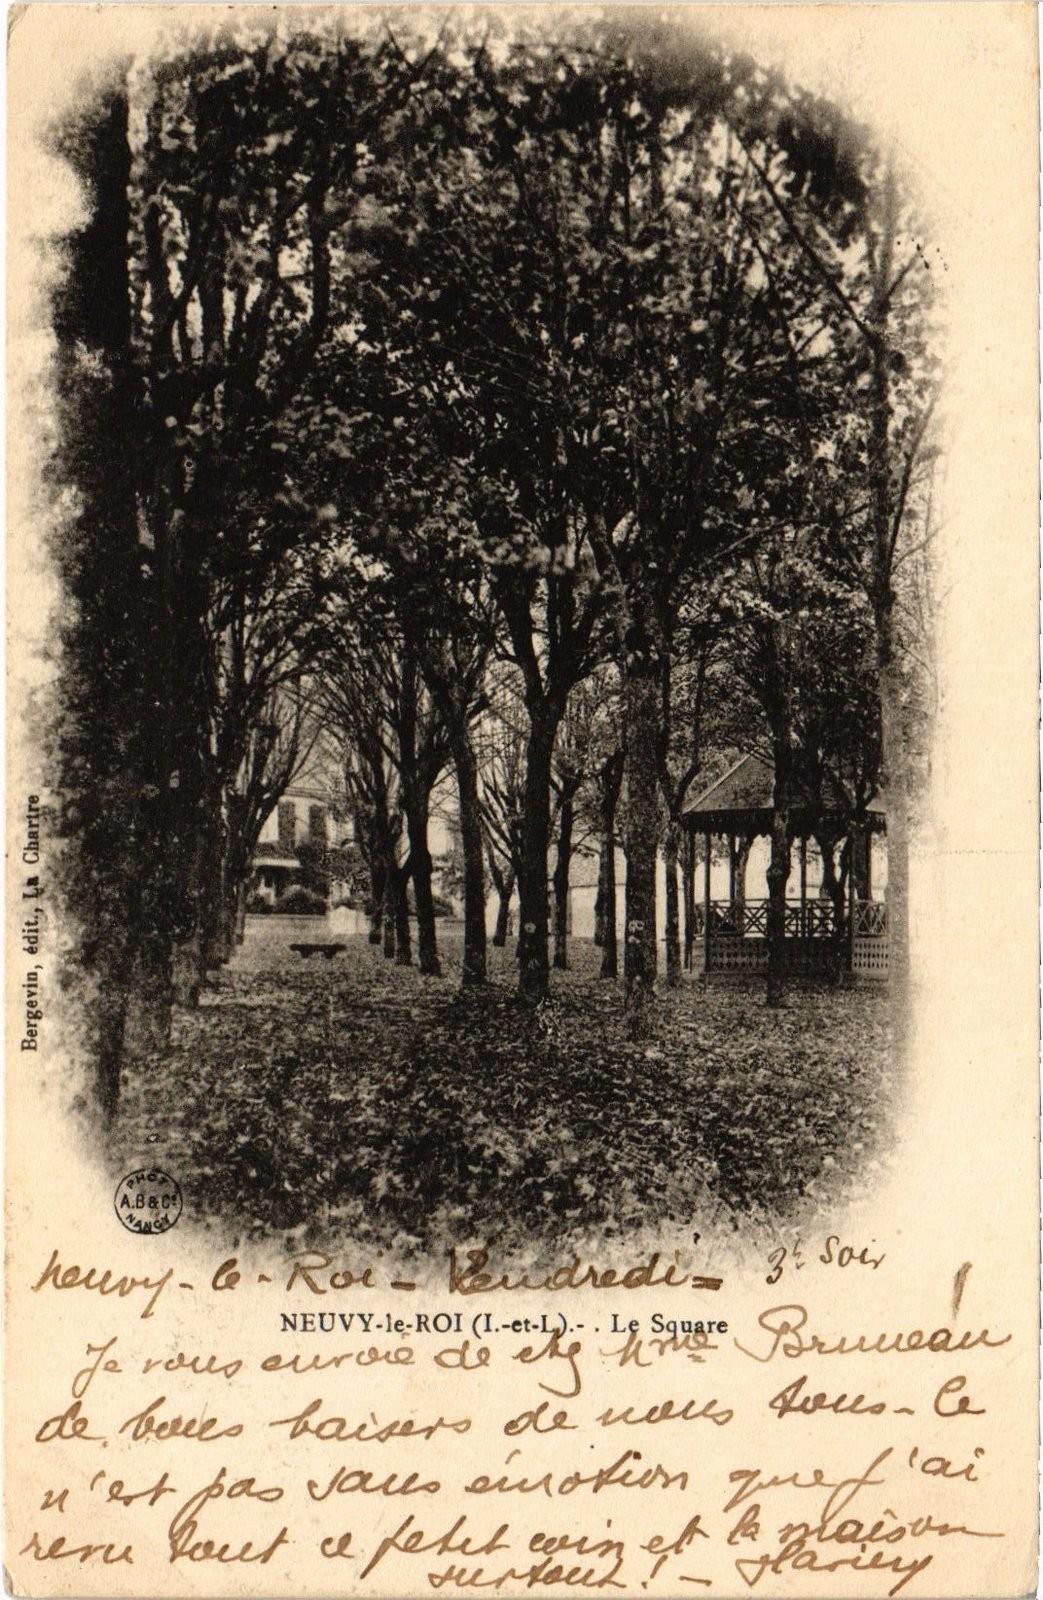 Bergevin, édit., La Chartre
PHOT
A.B & Cie
NANCY
Neuvy-le-Roi - Vendredi = 3h Soir
NEUVY-le-ROI (I.-et-L).- . Le Square
Je vous envoie de chg Mme Bruneau
de bons baisers de nous tous - Ce
n'est pas sans émotion que j'ai
revu tout ce petit coin et la maison
surtout ! -